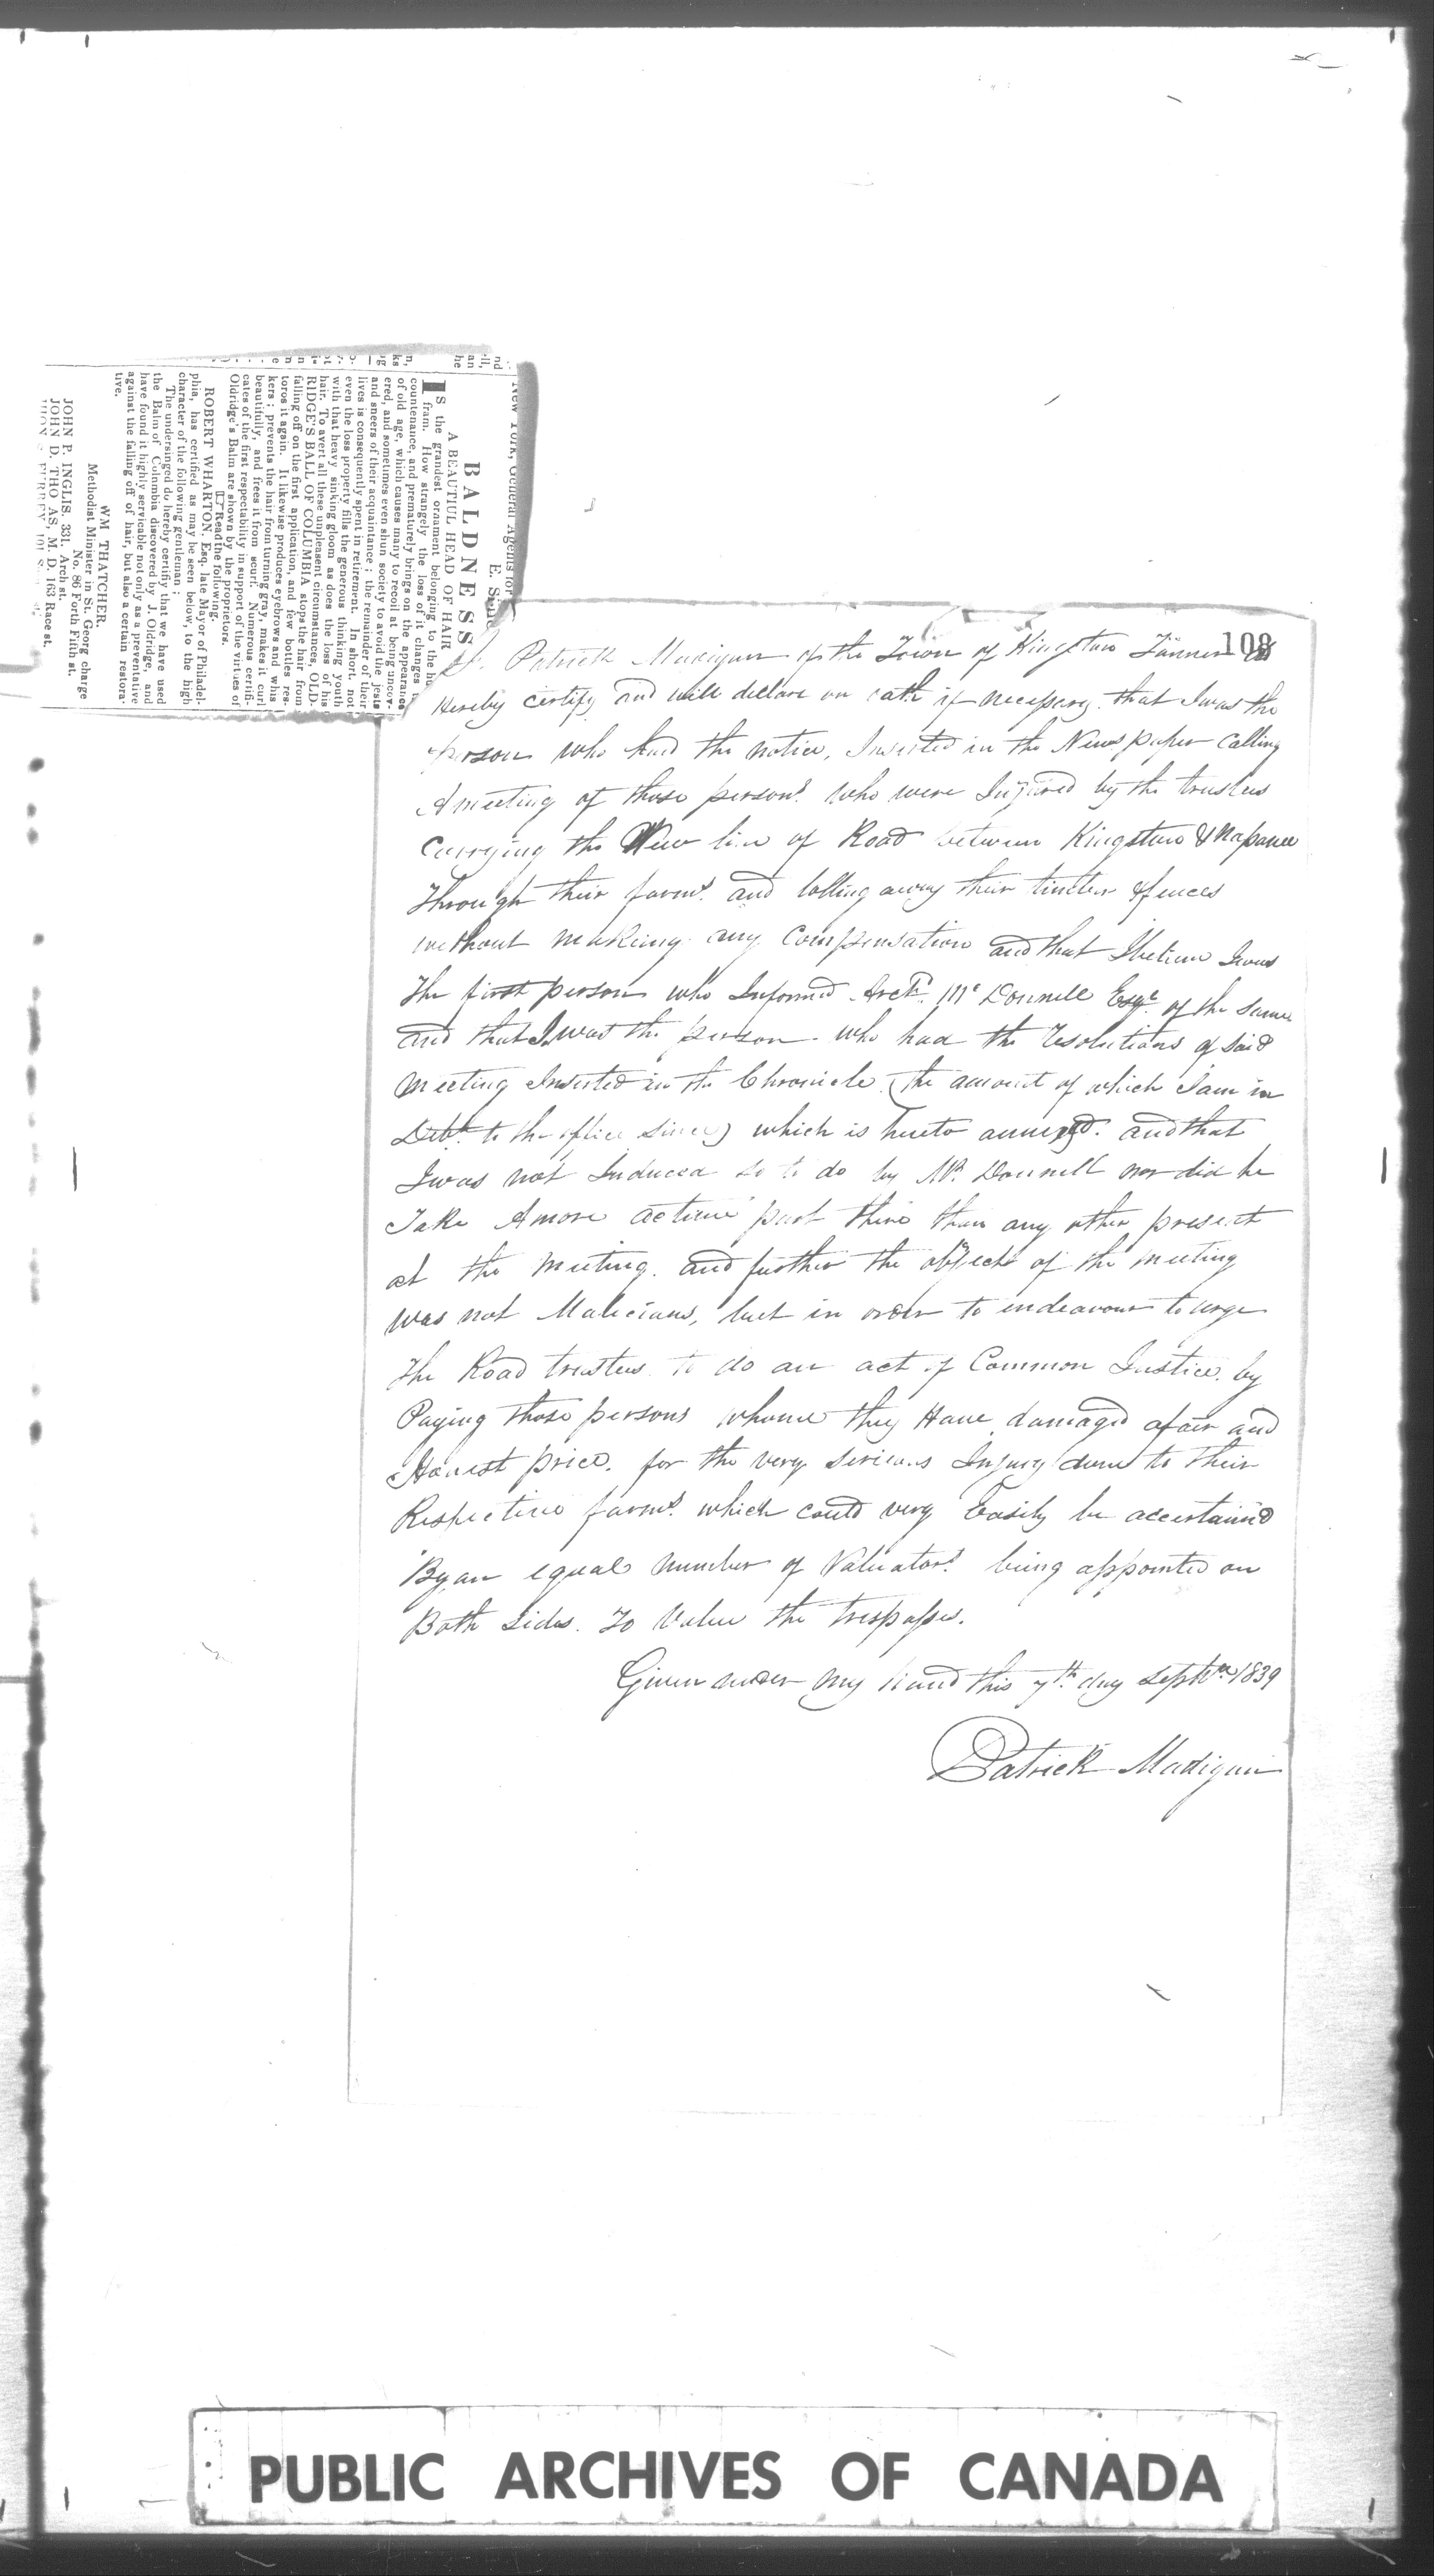 New York, General Agents for
E. S
BALDNESS
A BEAUTIUL HEAD OF HAIR
IS the grandest ornament belonging to the hu
fram. How strangely the loss of it changes
countenance, and prematurely brings on the appearance
of old age, which causes many to recoil at being uncov-
ered, and sometimes even shun society to avoid the jests
and sneers of their acquaintance; the remainder of their
lives is consequently spent in retirement. In short, not
even the loss property fills the generous thinking youth
with that heavy sinking gloom as does the loss of his
hair. To avert all these unpleasent circumstances, OLD-
RIDGE'S BALL OF COLUMBIA stops the hair from
falling off on the first application, and few bottles res-
toros it again. It likewise produces eyebrows and whis
kers; prevents the hair from turning gray, makes it curl
beautifully, and frees it from scurf. Numerous certifi-
cates of the first respectability in support of the virtues of
Oldridge's Balm are shown by the proprietors.
Read the following.
ROBERT WHARTON, Esq. late Mayor of Philadel-
phia, has certified as may be seen below, to the high
character of the following gentleman;
The undersinged do hereby certify that we have used
the Balm of Columbia discovered by J. Oldridge, and
have found it highly servicable not only as a preventative
against the falling off of hair, but also a certain restora-
tive.
WM THATCHER.
Methodist Minister in St. Georg charge
No. 86 Forth Fifth st.
JOHN P. INGLIS. 331. Arch st.
JOHN D. THO AS, M. D. 163 Race st.
108
I. Patrick Madigan of the Town of Kingston Tanner do
Hereby certify and will declare on oath if necessary. that I was the
person who had the notice, Inserted in the News paper Calling
A meeting of those persons who were Injured by the trustees
Carrying the New line of Road between Kingston & Napanee
Through their farms. and tolling away their timber & fences
without making any Compensation and that I believe I was
the first person who Informed Archd. Mc Donnell Esqe. of the same
and that I was the person who had the resolutions of said
meeting Inserted in the Chronicle (the amount of which I am in
Debt to the office since) which is hereto annexed. and that
I was not Induced so to do by Mr. Donnell nor did he
Take A more active part there than any other present
at the meeting. and further the objects of the meeting
was not Malicious, but in order to endeavour to urge
the Road trustees to do an act of Common Justice. by
Paying those persons whome they Have damaged a fair and
Honest price. for the very serious Injury done to their
Respective farms. which could very Easily be accertained
By an equal number of Valuators. being appointed on
Both sides. To Value the trespasses.
Given under my hand this 7th day Septbr 1839
Patrick Madigan
PUBLIC ARCHIVES OF CANADA